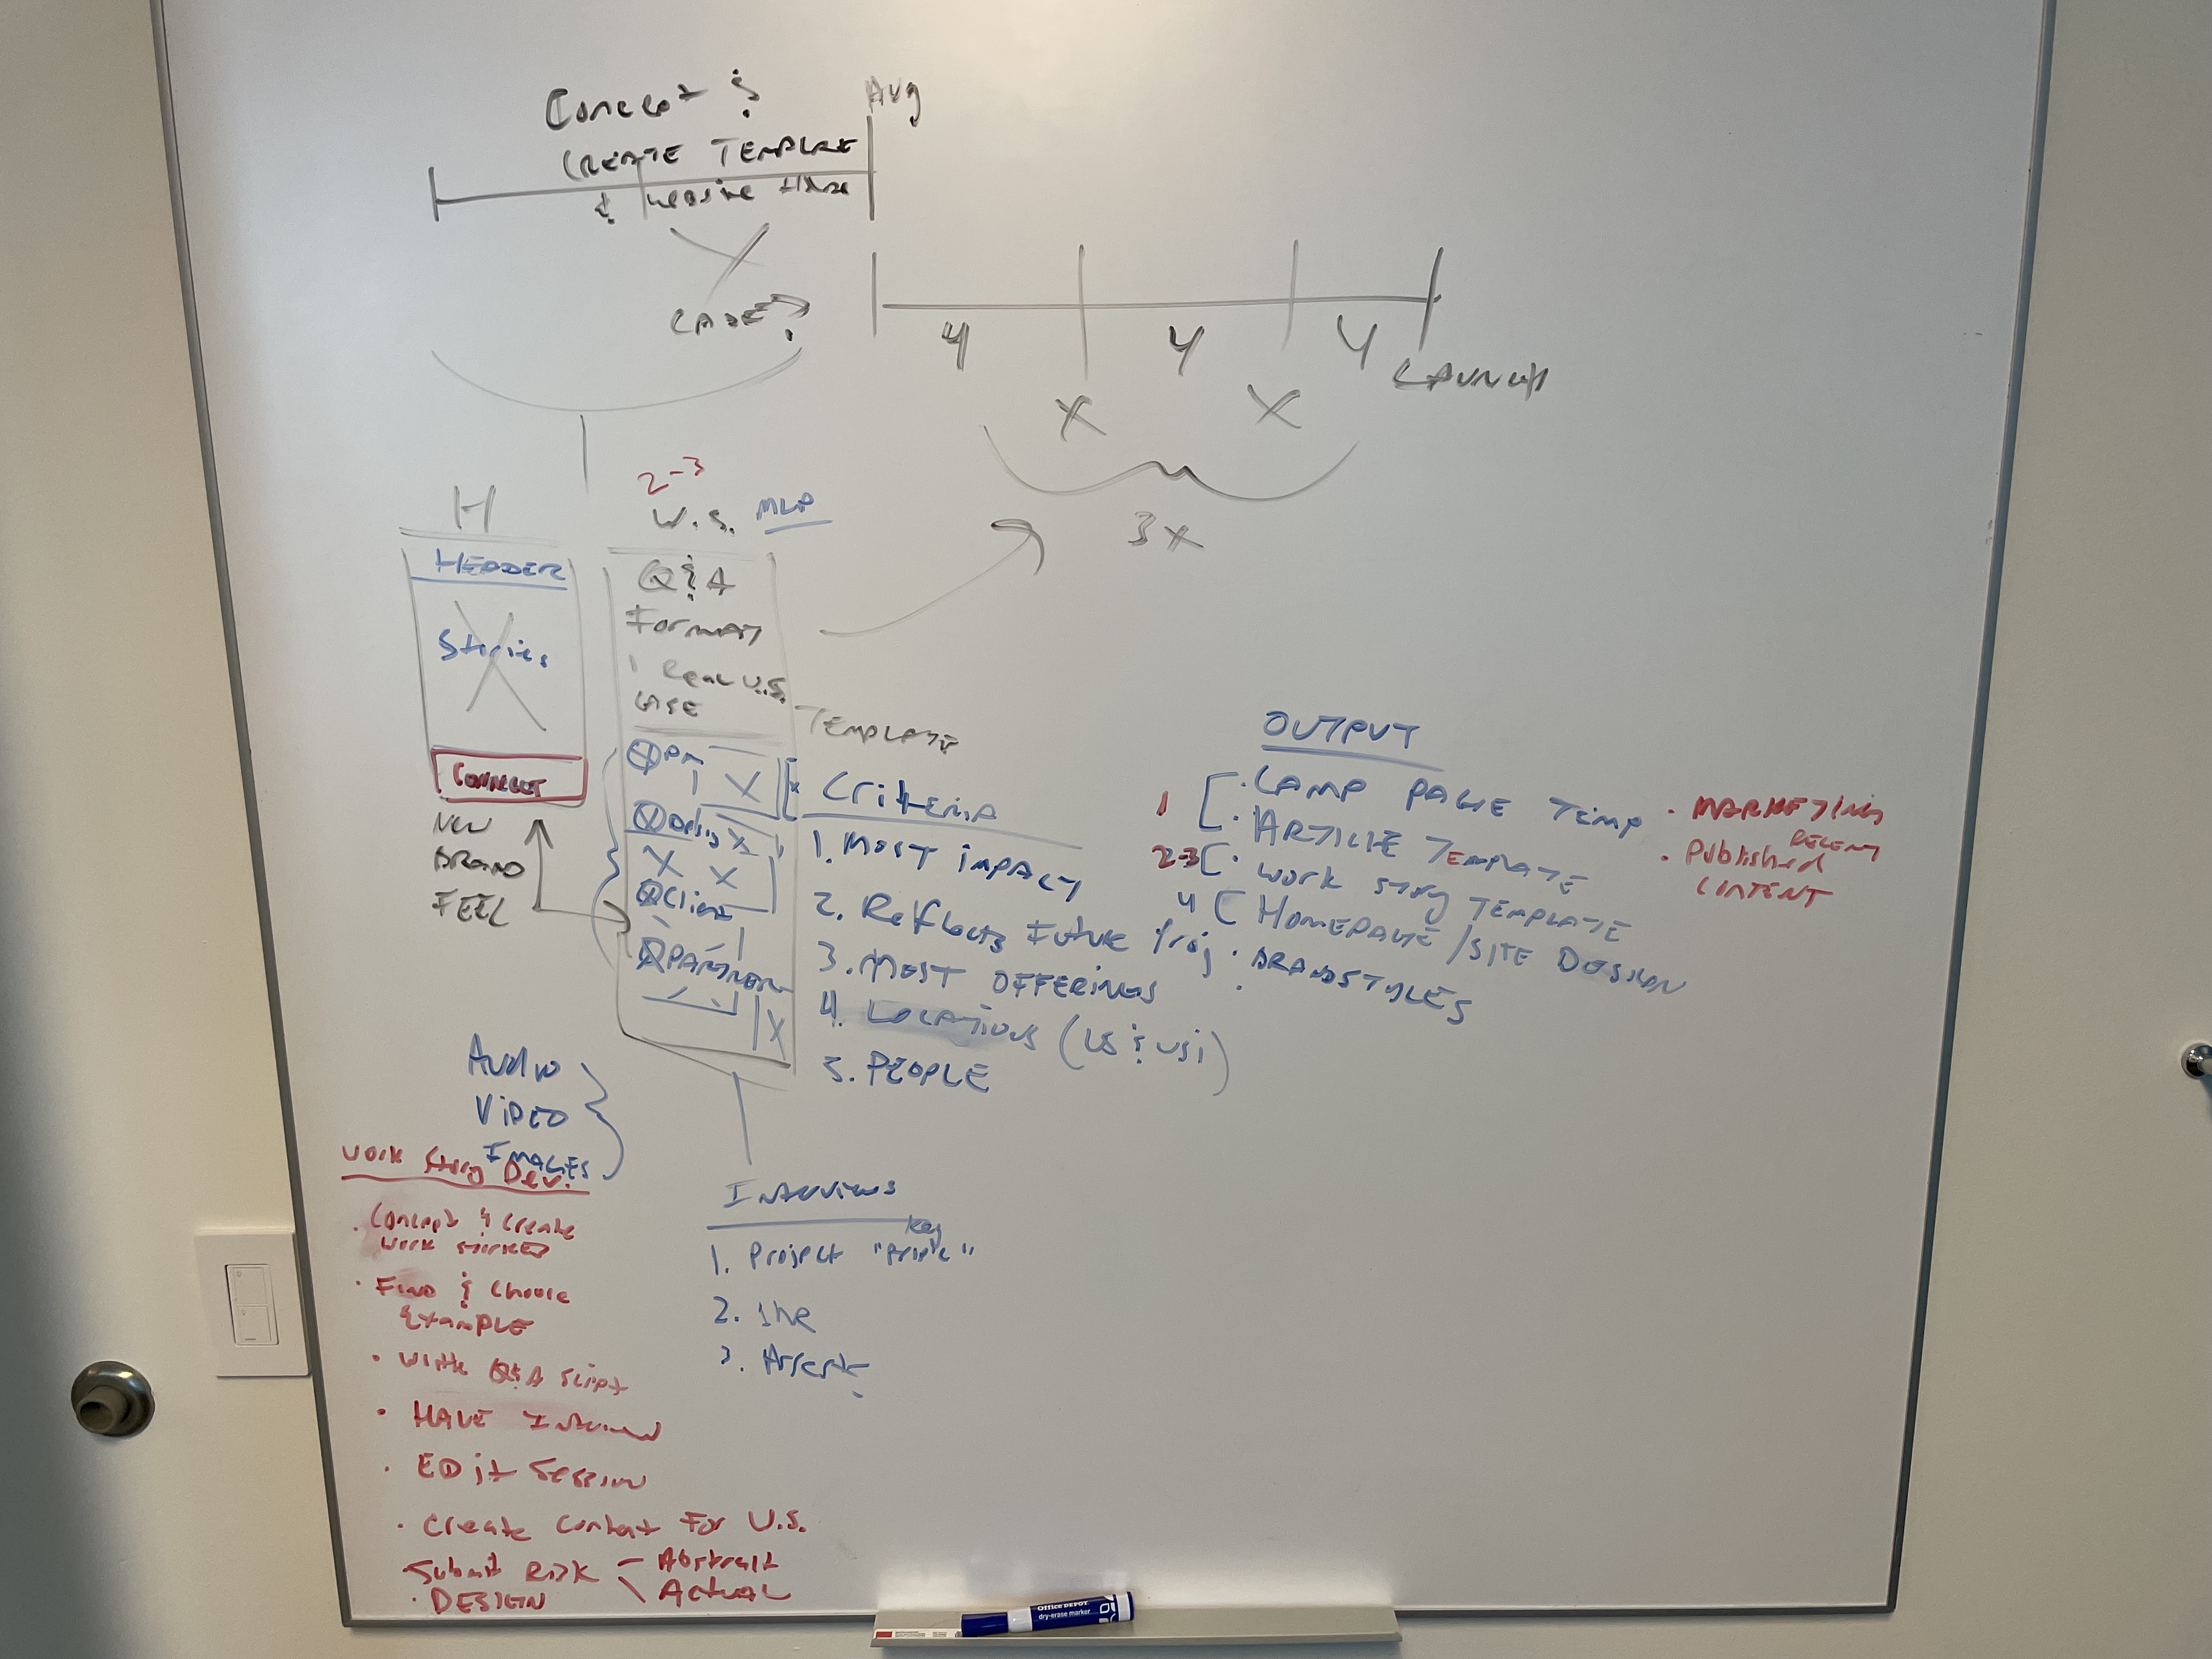 Concept &
Aug
CREATE TEMPLATE
&
CASE?
4 4 4
LAUNCH
X X
3x
2-3
H
W.S. MLP
HEADER
Stories
CONNECT
NEW
BRAND
FEEL
Q&A
FORMAT
1 Real W.S.
CASE
TEMPLATE
Q PM
X
Q
Q Client
Q PARTNER
X
Criteria
1. MOST impact
2. Reflects Future Proj
3. MOST OFFERINGS
4. LOCATIONS (US & USI)
5. PEOPLE
OUTPUT
1
· CAMP PAGE Temp
· ARTICLE TEMPLATE
2-3 · WORK STORY TEMPLATE
4 HOMEPAGE/SITE DESIGN
· BRANDSTYLES
· MARKETING
RECENT
· Published
CONTENT
Audio
VIDEO
IMAGES
Work Story Dev.
· Concept & Create
Work stories
· FIND & Choose
EXAMPLE
· Write Q&A Script
· HAVE Interview
· EDit Session
· Create Content For W.S.
Submit RISK – Abstract
\ ACTUAL
· DESIGN
Interviews
key
1. Project "People"
2.
3.
Office DEPOT
dry-erase marker